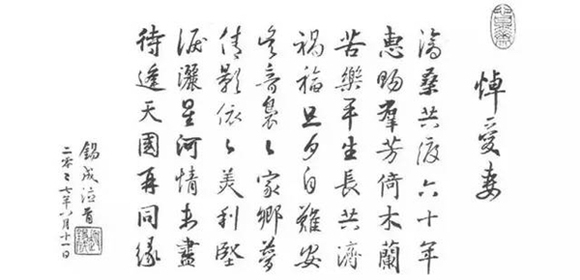 悼愛妻
滄桑共度六十年
惠賜羣芳倚木蘭
苦樂平生長共濟
禍福旦夕自難安
吴音裊々家鄉夢
倩影依々美利堅
淚灑星河情未盡
待逢天國再同緣
錫成泣首
二零々七年八月十一日